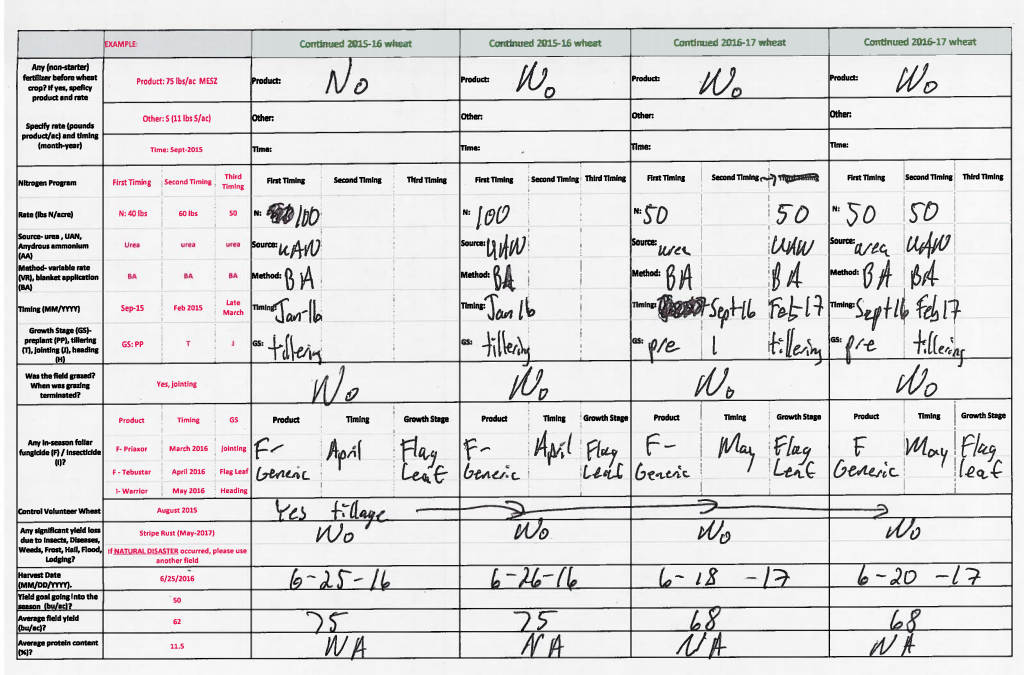 EXAMPLE: Continued 2015-16 wheat Continued 2015-16 wheat Continued 2016-17 wheat Continued 2016-17 wheat
Any (non-starter) fertilizer before wheat crop? If yes, speficy product and rate
Product: 75 lbs/ac MESZ Product: No Product: No Product: No Product: No
Specify rate (pounds product/ac) and timing (month-year)
Other: S (11 lbs S/ac) Other: Other: Other: Other:
Time: Sept-2015 Time: Time: Time: Time:
Nitrogen Program First Timing Second Timing Third Timing First Timing Second Timing Third Timing First Timing Second Timing Third Timing First Timing Second Timing First Timing Second Timing Third Timing
Rate (lbs N/acre) N: 40 lbs 60 lbs 50 N: 100 N: 100 50 50 N: 50 50
Source- urea , UAN, Anydrous ammonium (AA) Urea urea urea Source: UAN Source: UAN Source: urea UAN Source: urea UAN
Method- variable rate (VR), blanket application (BA) BA BA BA Method: BA Method: BA Method: BA BA Method: BA BA
Timing (MM/YYYY) Sep-15 Feb 2015 Late March Timing: Jan-16 Timing: Jan 16 Timing: Sept 16 Feb-17 Timing: Sept 16 Feb 17
Growth Stage (GS)- preplant (PP), tillering (T), jointing (J), heading (H) GS: PP T J GS: tillering GS: tillering GS: pre tillering GS: pre tillering
Was the field grazed? When was grazing terminated? Yes, jointing No No No No
Product Timing GS Product Timing Growth Stage Product Timing Growth Stage Product Timing Growth Stage Product Timing Growth Stage
Any in-season foliar fungicide (F) / insecticide (I)?
F- Priaxor March 2016 Jointing F- April Flag F- April Flag F- May Flag F May Flag
F - Tebustar April 2016 Flag Leaf Generic Leaf Generic Leaf Generic Leaf Generic leaf
I- Warrior May 2016 Heading
Control Volunteer Wheat August 2015 Yes tillage
Any significant yield loss due to Insects, Diseases, Weeds, Frost, Hail, Flood, Lodging? Stripe Rust (May-2017) No No No No
If NATURAL DISASTER occurred, please use another field
Harvest Date (MM/DD/YYYY). 6/25/2016 6-25-16 6-26-16 6-18-17 6-20-17
Yield goal going into the season (bu/ac)? 50
Average field yield (bu/ac)? 62 75 75 68 68
Average protein content (%)? 11.5 NA NA NA NA